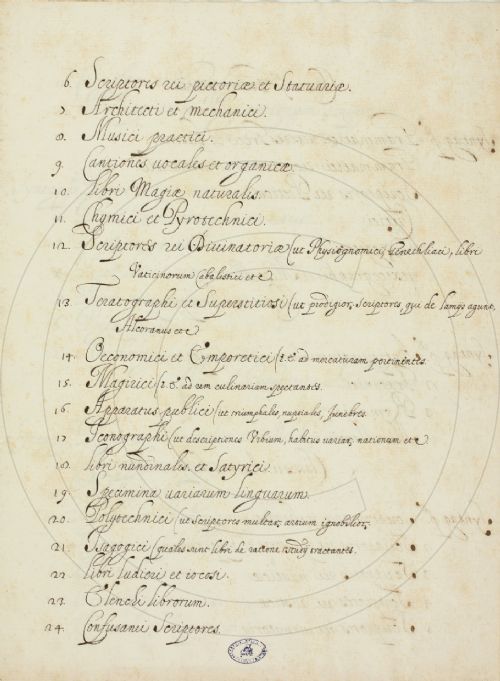 6. Scriptores rei pictoriæ et Statuariæ.
7. Architecti et mechanici.
8. Musici practici.
9. Cantiones vocales et organicæ.
10. libri Magiæ naturalis.
11. Chymici et Pyrotechnici.
12. Scriptores rei Divinatoriæ (ut Physiognomici, Genethliaci, libri
Vaticinorum Cabalistici et c
13. Teratographi et Superstitiosi (ut prodigior. Scriptores, qui de lamys agunt,
Alcoranus et c
14. Oeconomici et Emporetici (i.e. ad mercaturam pertinentes.
15. Magirici (i.e. ad rem culinariam spectantes.
16. Apparatus publici (ut triumphales, nuptiales, funebres.
17. Iconographi (ut descriptiones Urbium, habitus variar. nationum et c
18. libri nundinales. et Satyrici.
19. Specimina variarum linguarum.
20. Polytechnici (ut Scriptores multar. artium ignobilior.
21. Isagogici (quales sunt libri de ratione study tractantes.
22. libri ludicri et iocosi.
23. Elenchi librorum.
24. Confusanei Scriptores.